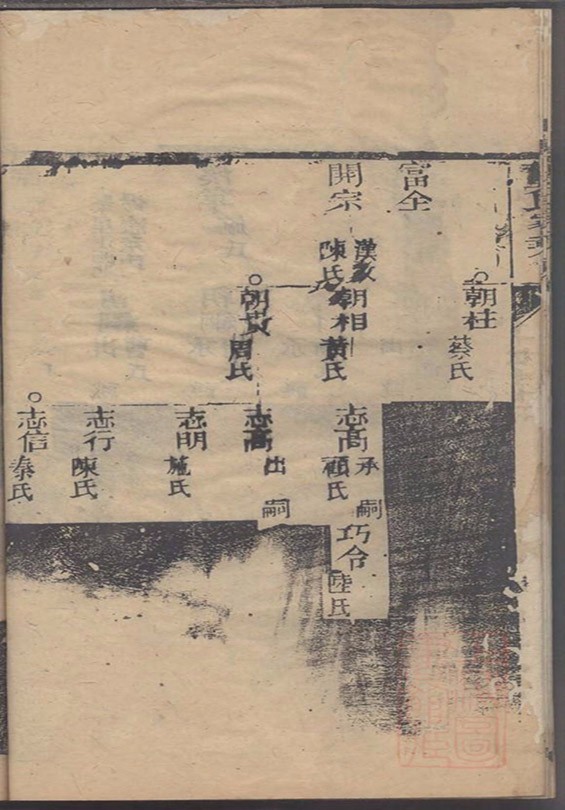 朝柱
蔡氏
富全
開宗
漢文
陳氏
朝相
黃氏
志高
承嗣
顧氏
巧合
陸氏
周氏
志高
出嗣
志明
施氏
志行
陳氏
志信
秦氏